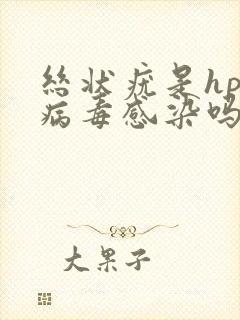 丝状疣是hp
病毒感染吗
大果子